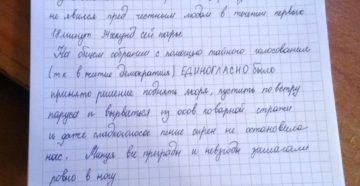 не явился пред честным людом в течении первых
18 минут 34 секунд сей пары.
На общем собрании с помощью тайного голосования
(т.к. в житие демократия) ЕДИНОГЛАСНО было
принято решение поднять якоря, пустить по ветру
паруса и вырваться из оков коварной стражи
и даже сладкоголосое пение сирен не остановило
нас. Минуя все преграды и невзгоды зашагали
ровно в ногу